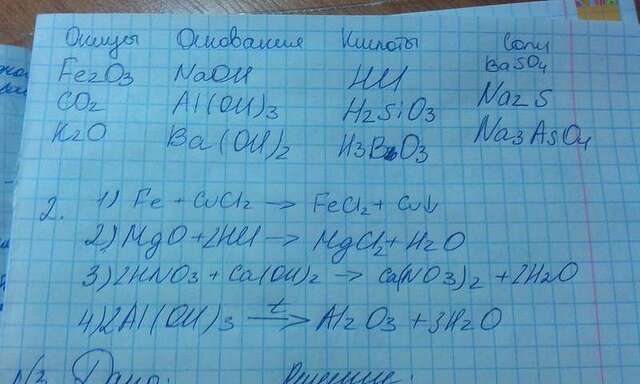 Оксиды Основания Кислоты Соли
Fe2O3 NaOH HCl BaSO4
CO2 Al(OH)3 H2SiO3 Na2S
K2O Ba(OH)2 H3BO3 Na3AsO4
2. 1) Fe + CuCl2 → FeCl2 + Cu↓
2) MgO + 2HCl → MgCl2 + H2O
3) 2HNO3 + Ca(OH)2 → Ca(NO3)2 + 2H2O
4) 2Al(OH)3 t→ Al2O3 + 3H2O
N3 Дано: Решение: